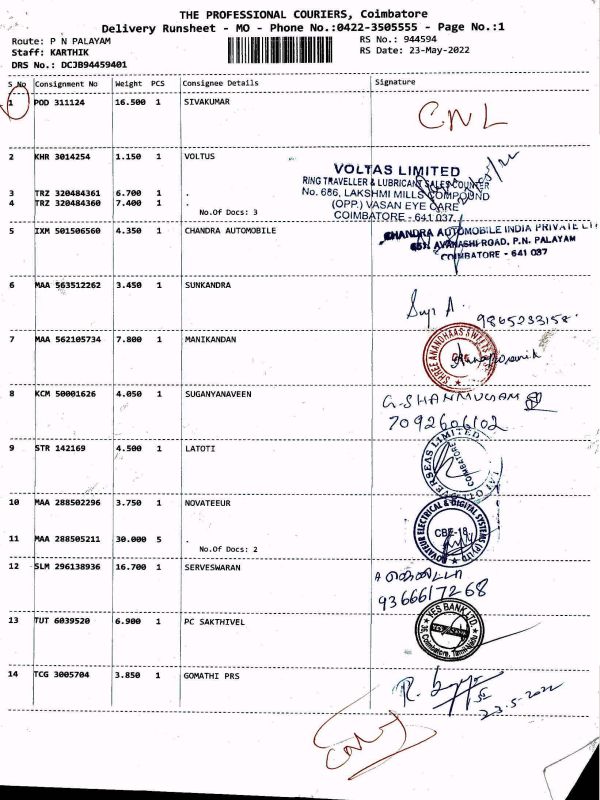 THE PROFESSIONAL COURIERS, Coimbatore
Delivery Runsheet - MO - Phone No.:0422-3505555 - Page No.:1
Route: P N PALAYAM
Staff: KARTHIK
DRS No.: DCJB94459401
RS No.: 944594
RS Date: 23-May-2022
S.No Consignment No Weight PCS Consignee Details Signature
1 POD 311124 16.500 1 SIVAKUMAR CNL
2 KHR 3014254 1.150 1 VOLTUS
VOLTAS LIMITED
RING TRAVELLER & LUBRICANT SALES COUNTER
No. 686, LAKSHMI MILLS COMPOUND
(OPP.) VASAN EYE CARE
COIMBATORE - 641 037.
3 TRZ 320484361 6.700 1 .
4 TRZ 320484360 7.400 1 .
No.Of Docs: 3
5 IXM 501506560 4.350 1 CHANDRA AUTOMOBILE
CHANDRA AUTOMOBILE INDIA PRIVATE LT
AVANASHI ROAD, P.N. PALAYAM
COIMBATORE - 641 037
6 MAA 563512262 3.450 1 SUNKANDRA
9865233158
7 MAA 562105734 7.800 1 MANIKANDAN
SHREE ANANDHAAS SWEETS
8 KCM 50001626 4.050 1 SUGANYANAVEEN
G. SHANMUGAM
7092606102
9 STR 142169 4.500 1 LATOTI
OVERSEAS LIMITED
COIMBATORE
10 MAA 288502296 3.750 1 NOVATEEUR
NOVATEUR ELECTRICAL & DIGITAL SYSTEMS (P) LTD
CBE-18
11 MAA 288505211 30.000 5 .
No.Of Docs: 2
12 SLM 296138936 16.700 1 SERVESWARAN
9366617268
13 TUT 6039520 6.900 1 PC SAKTHIVEL
YES BANK LTD.
Coimbatore, Tamil Nadu
14 TCG 3005704 3.850 1 GOMATHI PRS
23.5.2022